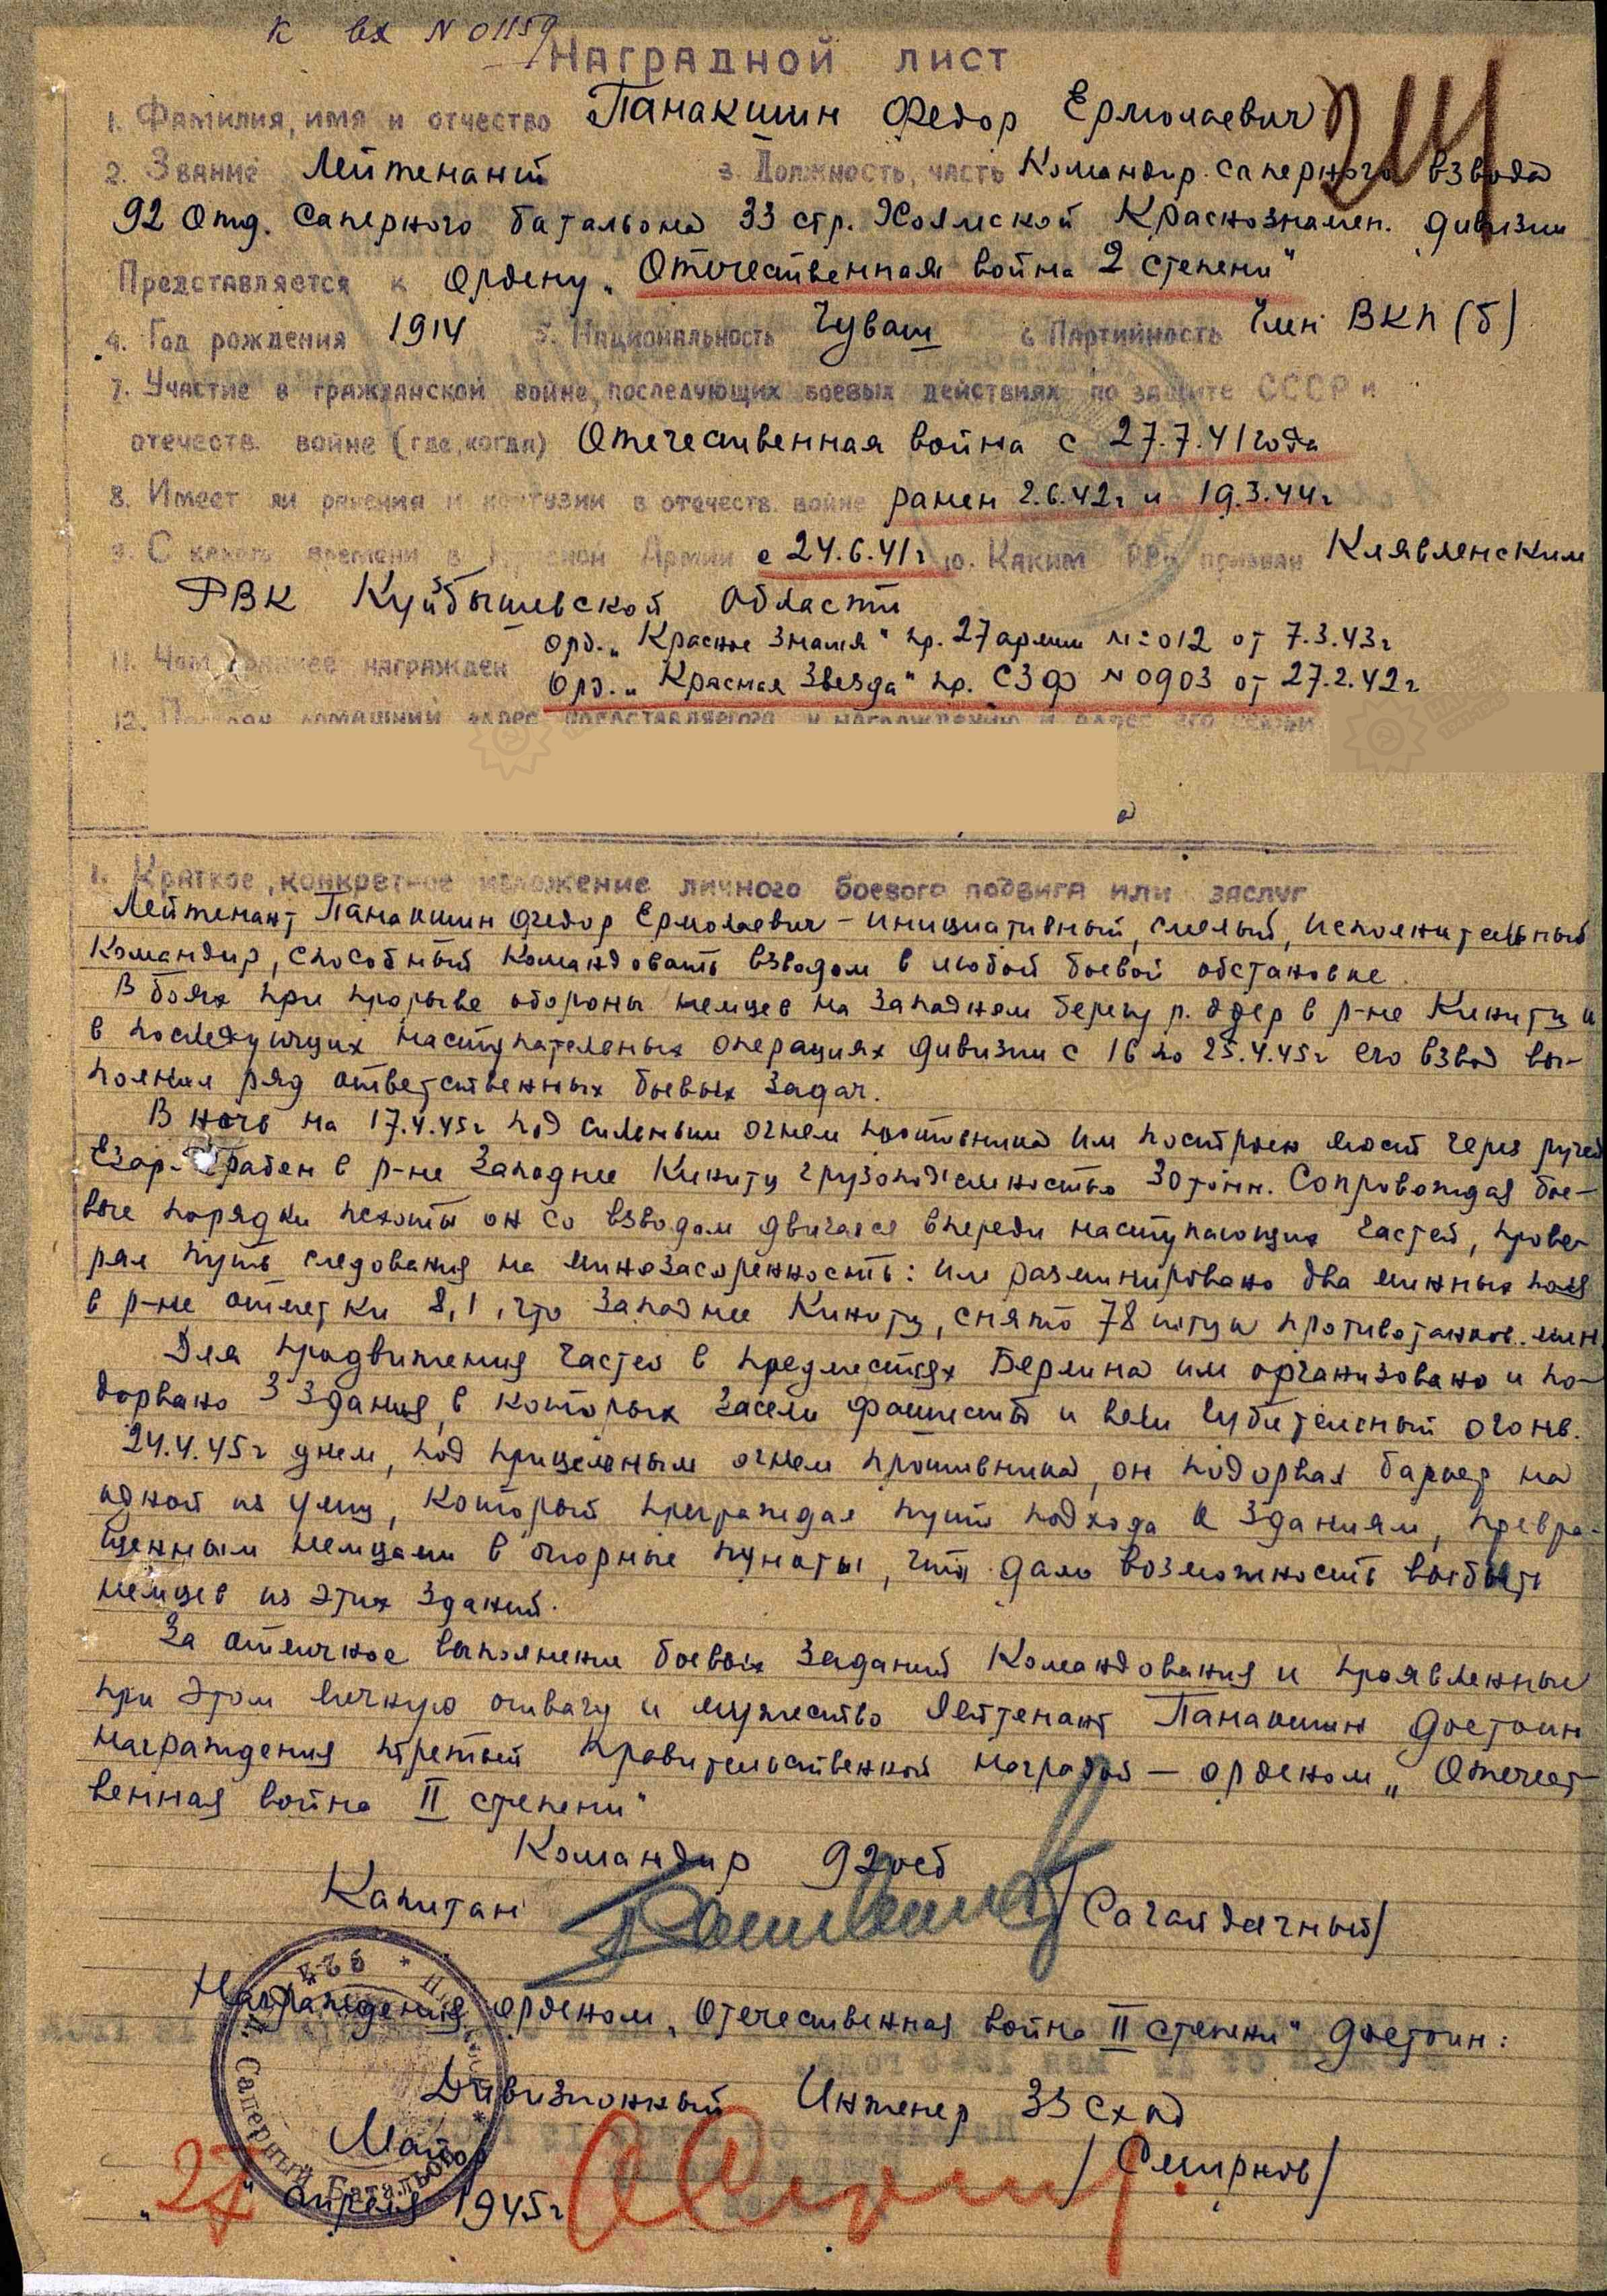 к вх N 01159
Наградной лист
1. Фамилия, имя и отчество Панакшин Федор Ермолаевич
2. Звание Лейтенант 3. Должность, часть Командир саперного взвода
92 Отд. Саперного батальона 33 стр. Холмской Краснознамен. дивизии
Представляется к Ордену „Отечественная война 2 степени"
4. Год рождения 1914 5. Национальность Чуваш 6. Партийность Член ВКП(б)
7. Участие в гражданской войне, последующих боевых действиях по защите СССР и
отечеств. войне (где, когда) Отечественная война с 27.7.41 года
8. Имеет ли ранения и контузии в отечеств. войне ранен 2.6.42г и 19.3.44г
9. С какого времени в Красной Армии с 24.6.41г 10. Каким РВК призван Клявлинским
РВК Куйбышевской области
Орд. „Красное Знамя" пр. 27 армии №012 от 7.3.43г
11. Чем ранее награжден Орд. „Красная Звезда" пр. СЗФ N0903 от 27.2.42г
12. домашний адрес представляемого к награждению и адрес его семьи
1. Краткое, конкретное изложение личного боевого подвига или заслуг
Лейтенант Панакшин Федор Ермолаевич – инициативный, смелый, исполнительный
Командир, способный командовать взводом в любой боевой обстановке.
В боях при прорыве обороны немцев на западном берегу р. Одер в р-не Киниту и
в последующих наступательных операциях дивизии с 16 по 25.4.45г его взвод вы-
полнил ряд ответственных боевых задач.
В ночь на 17.4.45г под сильным огнем противника им построен мост через ручей
в р-не западнее Киниту грузоподъемностью 30 тонн. Сопровождая бое-
вые порядки пехоты он со взводом двигался впереди наступающих частей, прове-
ряя путь следования на минозасоренность: им разминировано два минных поля
в р-не отметки 8,1, что западнее Киниту, снято 78 штук противотанков. мин.
Для продвижения частей в предместьях Берлина им организовано и по-
дорвано 3 здания, в которых засели фашисты и вели губительный огонь.
24.4.45г днем, под прицельным огнем противника, он подорвал барьер на
одной из улиц, который преграждал пути подхода к зданиям, превра-
щенным немцами в опорные пункты, что дало возможность выбить
немцев из этих зданий.
За отличное выполнение боевых заданий Командования и проявленные
при этом личную отвагу и мужество лейтенант Панакшин достоин
награждения третьей правительственной наградой – орденом „Отечест-
венная война II степени"
Командир 92 осб
Капитан /Сагайдачный/
Награждения орденом „Отечественная война II степени" достоин:
Дивизионный Инженер 33 схкд
Майор /Смирнов/
„27" апреля 1945г
92 Саперный Батальон